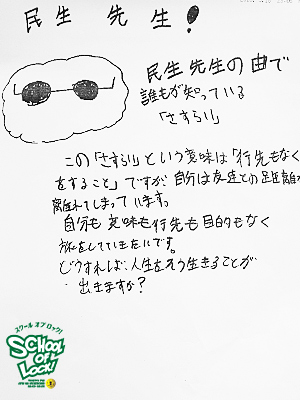 民生 先生!
民生先生の曲で
誰もが知っている
「さすらい」
この「さすらい」という意味は「行先もなく
をすること」ですが、自分は友達との距離が
離れてしまっています。
自分も意味も行先も目的もなく
旅をしていきたいです。
どうすれば、人生をそう生きることが
出来ますか?
スクール オブ ロック!
SCHOOL
OF
LOCK!